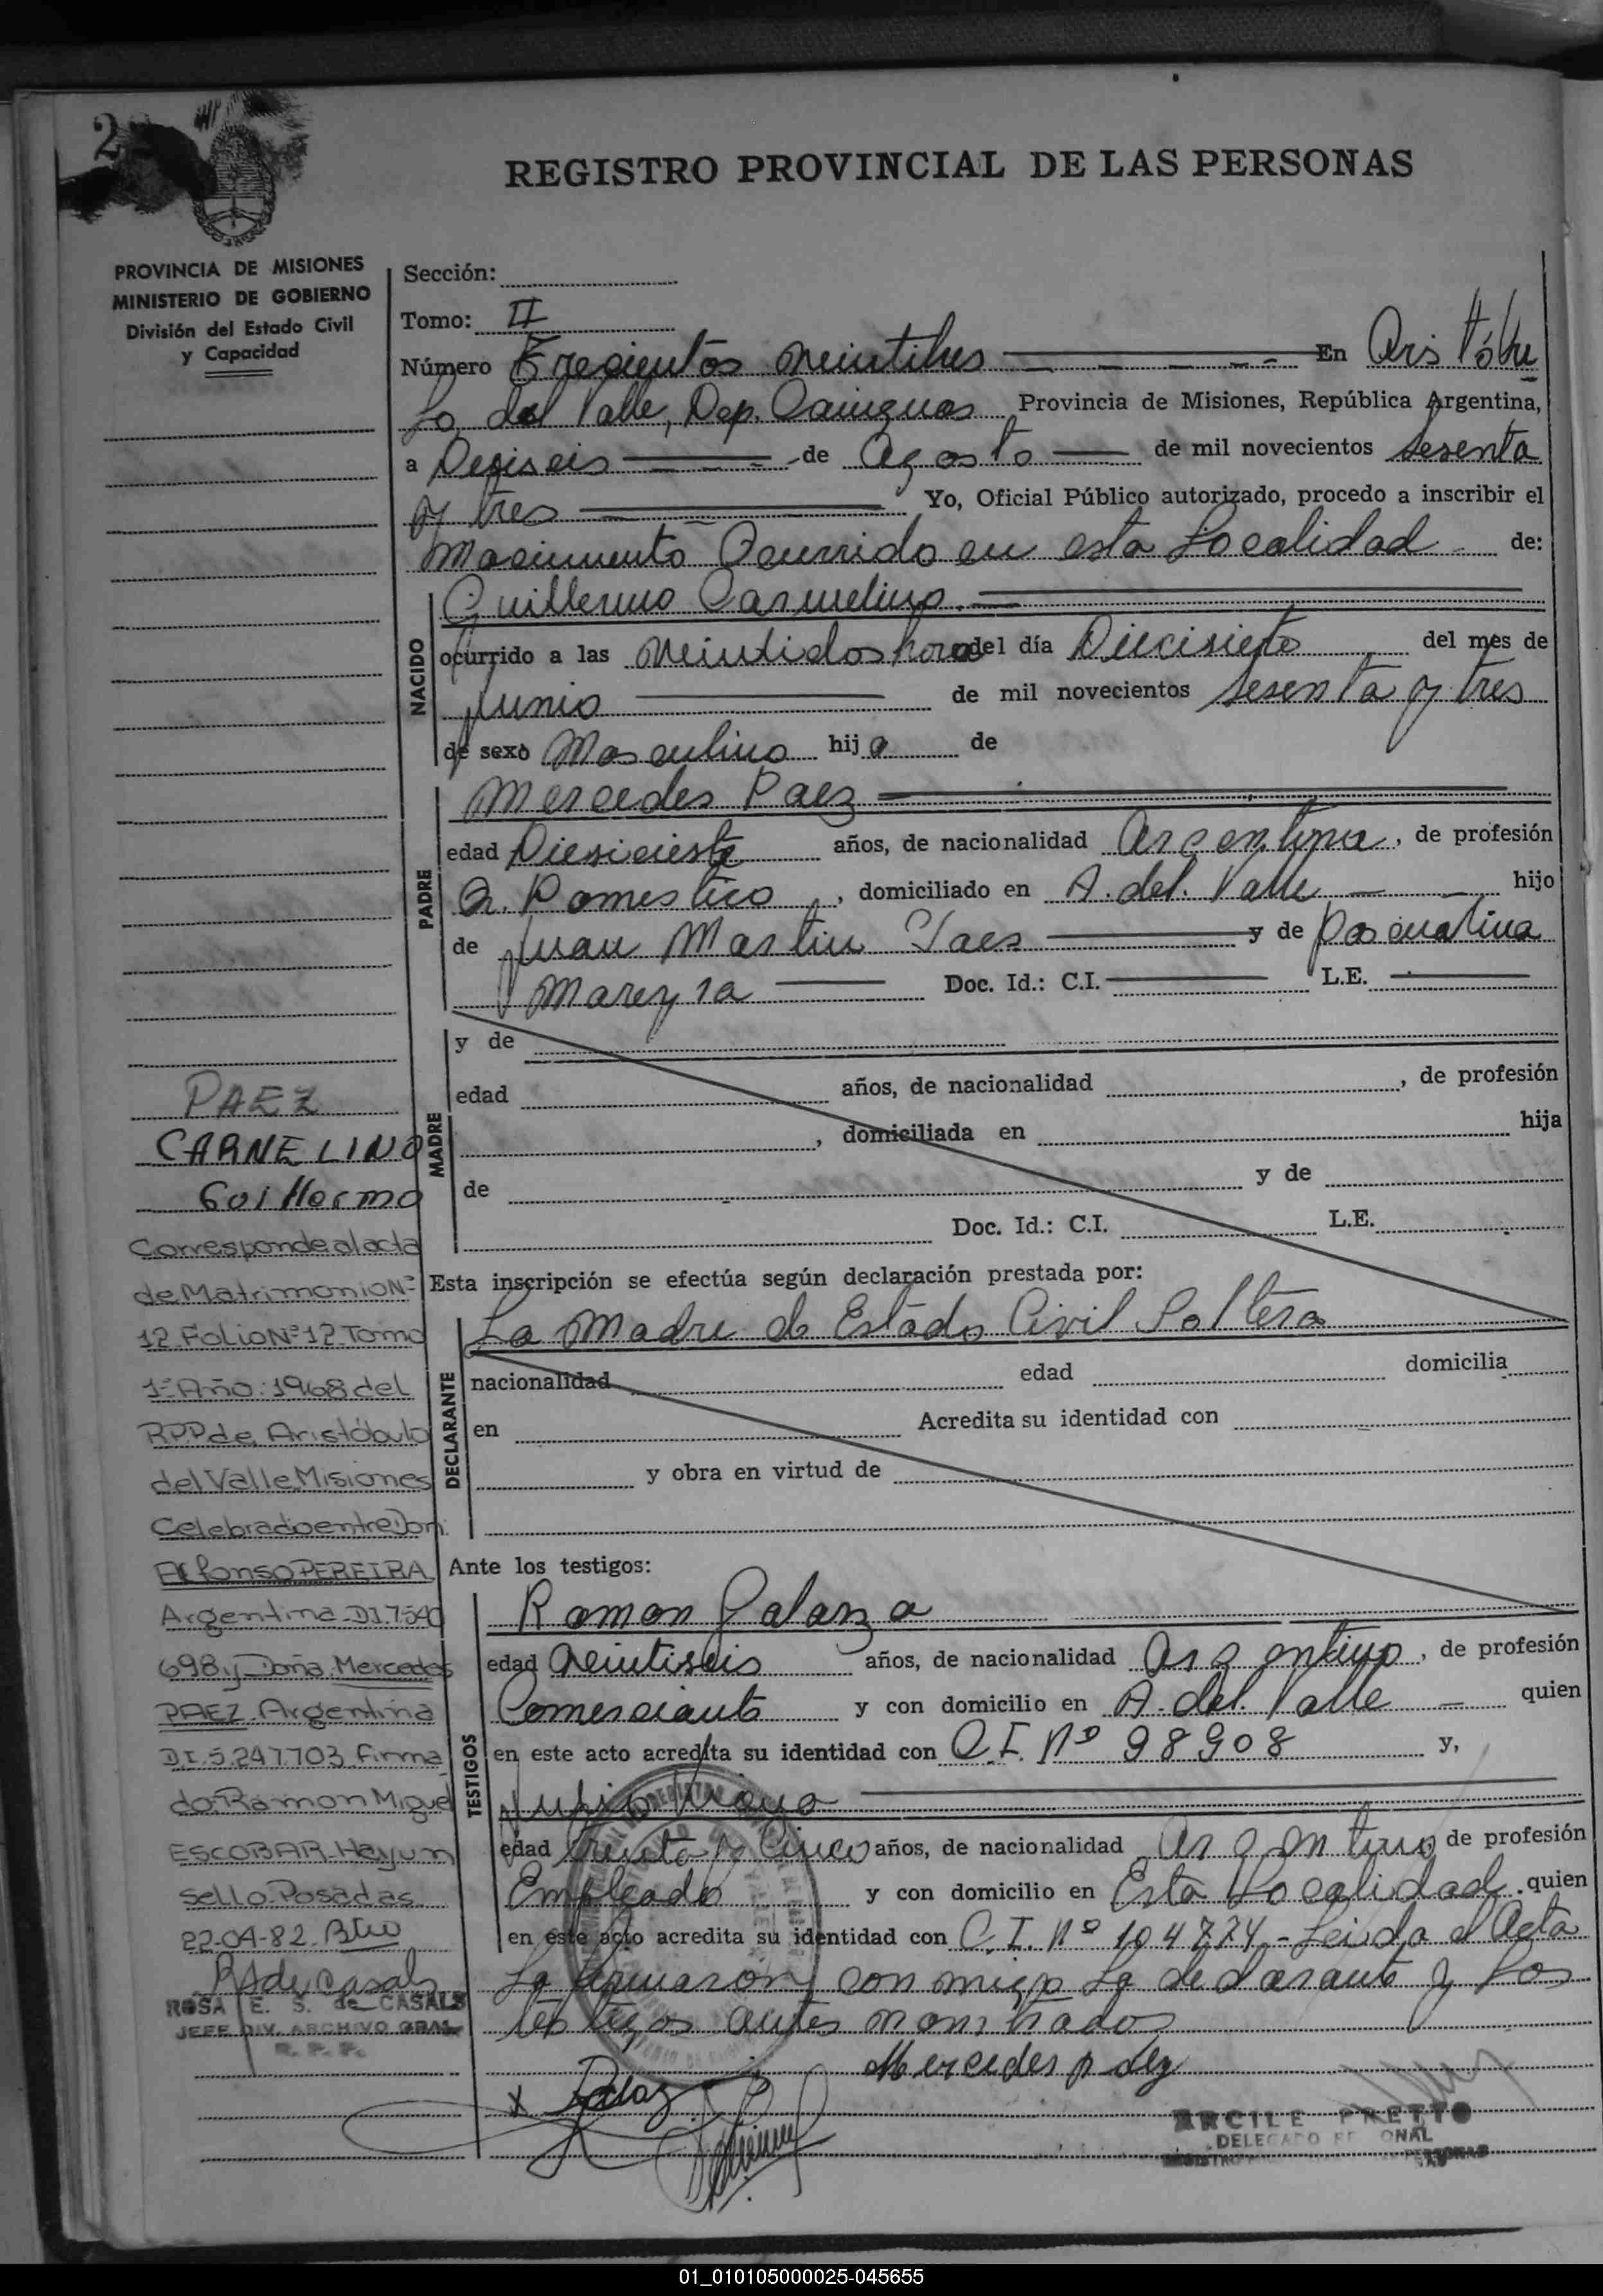 2
REGISTRO PROVINCIAL DE LAS PERSONAS
PROVINCIA DE MISIONES
MINISTERIO DE GOBIERNO
División del Estado Civil
y Capacidad
Sección:
Tomo: II
Número Trecientos veintitres En Aristóbu
lo del Valle, Dep. Cainguas Provincia de Misiones, República Argentina,
a Deziseis de Agosto de mil novecientos sesenta
y tres Yo, Oficial Público autorizado, procedo a inscribir el
Nacimiento Ocurrido en esta Localidad de:
NACIDO
Guillermo Carmelino.
ocurrido a las veintidos hora del día Diecisiete del mes de
Junio de mil novecientos sesenta y tres
de sexo Masculino hijo de
PADRE
Mercedes Paez
edad Diesicieste años, de nacionalidad Argentina, de profesión
Q. Domestico, domiciliado en A. del. Valle hijo
de Juan Martin Paes y de Pascualina
Mareyra Doc. Id.: C.I. L.E.
MADRE
y de
edad años, de nacionalidad , de profesión
, domiciliada en hija
de y de
Doc. Id.: C.I. L.E.
Esta inscripción se efectúa según declaración prestada por:
DECLARANTE
La Madre de Estado Civil Soltera
nacionalidad edad domicilia
en Acredita su identidad con
y obra en virtud de
Ante los testigos:
TESTIGOS
Ramon Galarza
edad veintiseis años, de nacionalidad Argentino, de profesión
Comerciante y con domicilio en A. del. Valle quien
en este acto acredita su identidad con C.I. Nº 98908 y,
edad treinta y Cinco años, de nacionalidad Argentino de profesión
Empleado y con domicilio en Esta Localidad. quien
en este acto acredita su identidad con C.I. Nº 104774 - Leida el Acta
La firmaron con migo La declarante y Los
testigos antes nombrados
Mercedes paez
ARCILE PRETTO
DELEGADO
PAEZ
CARNELINO
Guillermo
Corresponde al acta
de Matrimonio Nº
12 Folio Nº 12 Tomo
1º Año: 1968 del
RPP de Aristóbulo
del Valle Misiones
Celebrado entre Don:
Alfonso PEREIRA
Argentina DI. 7540
698 y Doña Mercedes
PAEZ Argentina
D.I. 5.247.703 firma
do: Ramon Miguel
ESCOBAR - Hay un
sello - Posadas
22-04-82
R de Casals
ROSA E. S. de CASALS
JEFE DIV. ARCHIVO GRAL.
R. P. P.
01_010105000025-045655